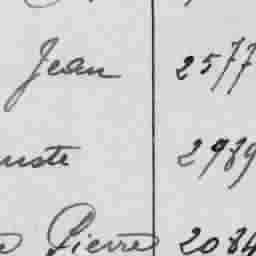 Jean 2577
uste 2989
Pierre 2084